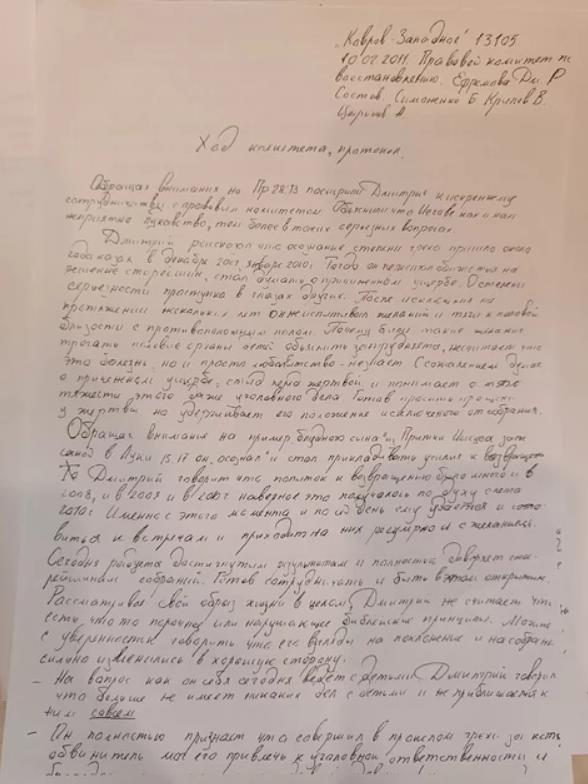 "Ковров-Западное" 13105
10/02 2011. Правовой комитет по
восстановлению. Ефремова Дм. Р
Состав. Симоненко Б. Крылов В.
А.
Ход комитета, протокол.
Обращая внимания на Пр 28:13 поощрили Дмитрия к искреннему
сотрудничеству с правовым комитетом. Объяснили что Иегове как и нам
неприятно лукавство, тем более в таких серьезных вопросах.
Дмитрий рассказал что осознание степени греха пришло около
года назад в декабре 2009, январе 2010г. Тогда он перестал обижаться на
решение старейшин, стал думать о причиненном ущербе. О степени
серьезности проступка в глазах других. После исключения на
протяжении нескольких лет он не испытывал желаний и тяги к половой
близости с противоположным полом. Почему было такие желание
трогать половые органы детей объяснить затрудняется, не считает что
это болезнь, но и просто любопытство - не знает. С сожалением думает
о причиненном ущербе, стыд перед жертвой и понимает о
тяжести этого даже уголовного дела. Готов просить прощение
у жертвы но удерживает его положение исключенного от собрания.
Обращая внимание на пример блудного сына из Притчи Иисуса запи
санной в Луки 15:17 он "осознал" и стал прикладывать усилия к возвращен
Дмитрий говорит что попыток к возвращению было много и в
2008, и в 2009 и в наверное это получалось по духу с лета
2010г Именно с этого момента и по сей день ему удается и гото
виться к встречам и приходит на них регулярно и с желанием.
Сегодня радуется достигнутым результатам и полностью доверяет ста
рейшинам собраний. Готов сотрудничать и быть в этом открытым.
Рассматривая свой образ жизни в целом, Дмитрий не считает что
есть что то порочно или нарушающее библейские принципы. Может
с уверенностью говорить что его взгляды на поклонение и на собрание
сильно изменились в хорошую сторону.
- На вопрос как он себя сегодня ведет с детьми, Дмитрий говорил
что больше не имеет никаких дел с детьми и не приближается к
ним совсем
- Он полностью признает что совершил в прошлом грех, за
обвинитель мог его привлечь к уголовной ответственности и